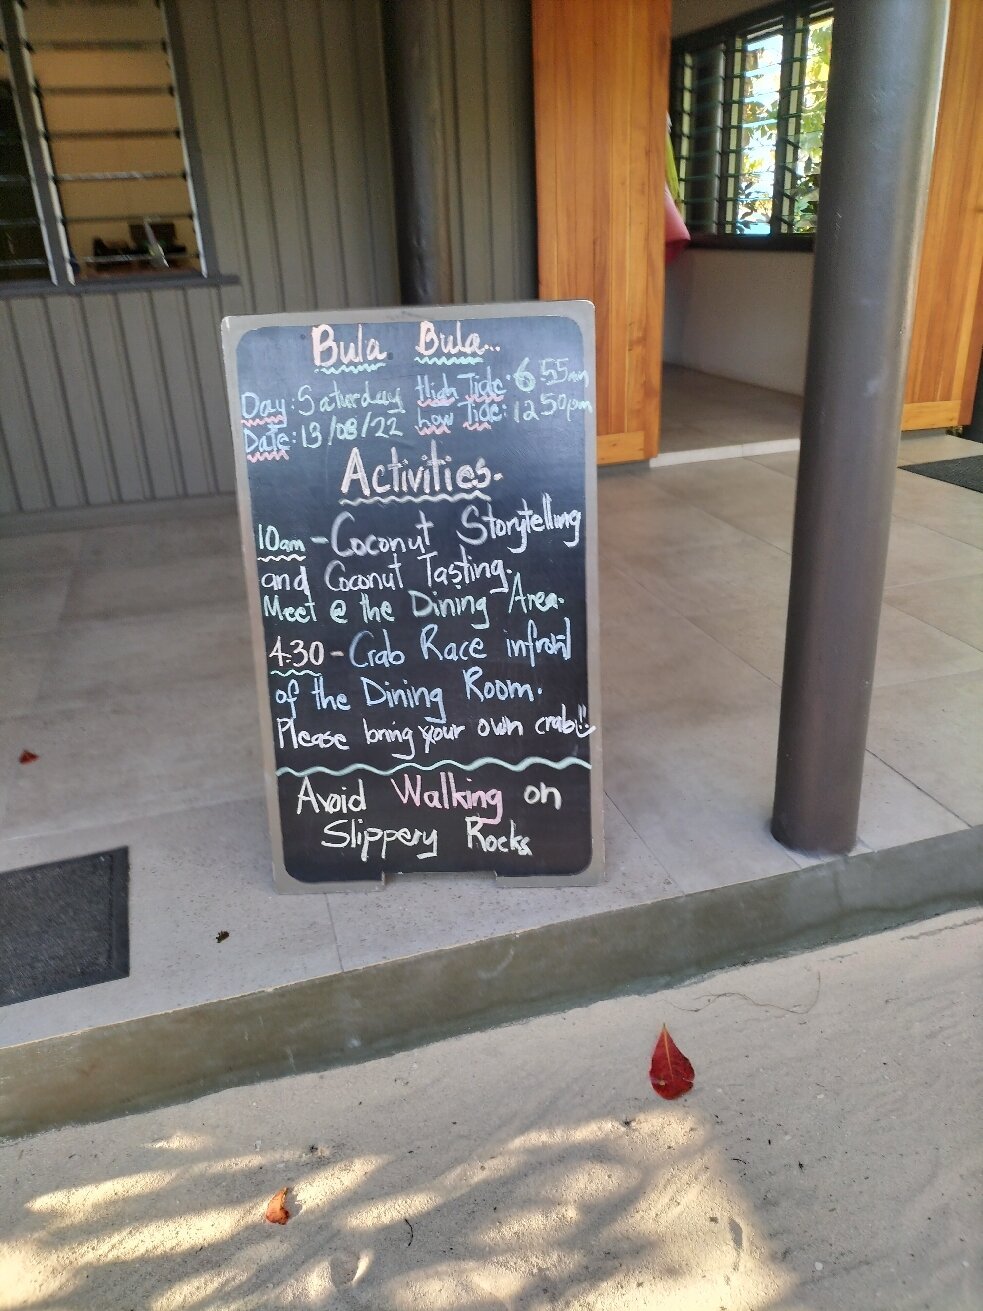 Bula Bula...
Day: Saturday High Tide: 6:55am
Date: 13/08/22 Low Tide: 12:50pm
Activities.
10am - Coconut Storytelling
and Coconut Tasting.
Meet @ the Dining Area.
4:30 - Crab Race infront
of the Dining Room.
Please bring your own crab!!
Avoid Walking on
Slippery Rocks